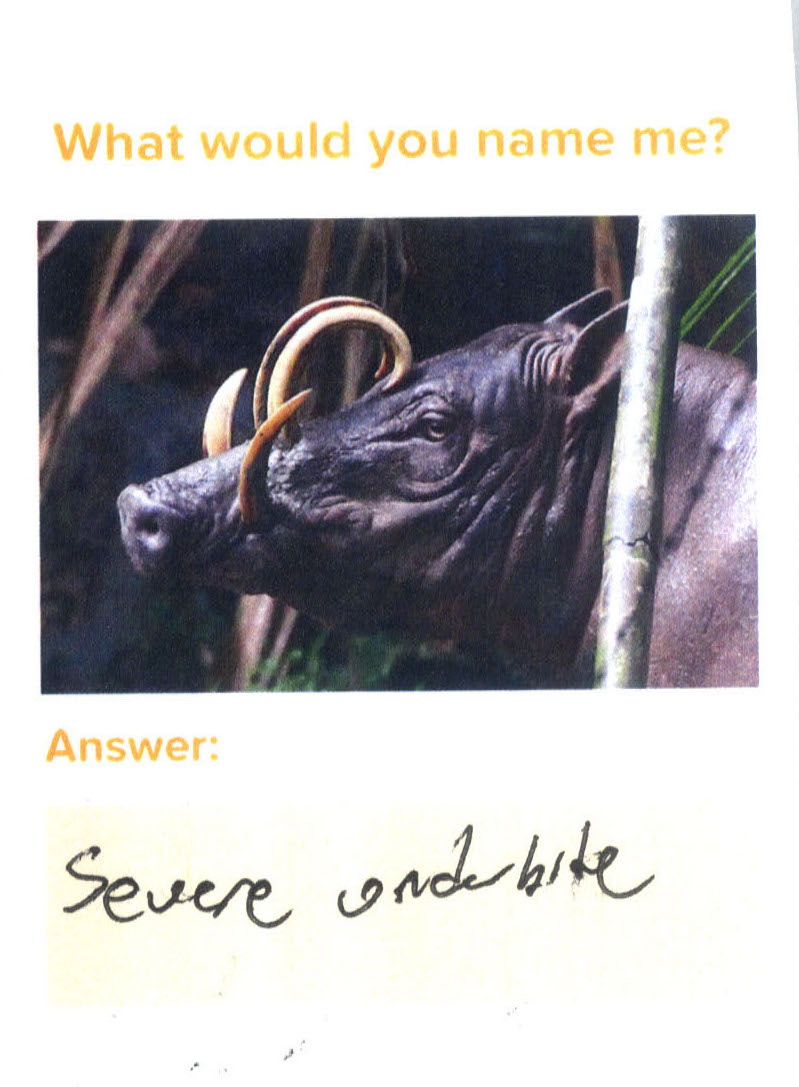 What would you name me?
Answer:
Severe underbite